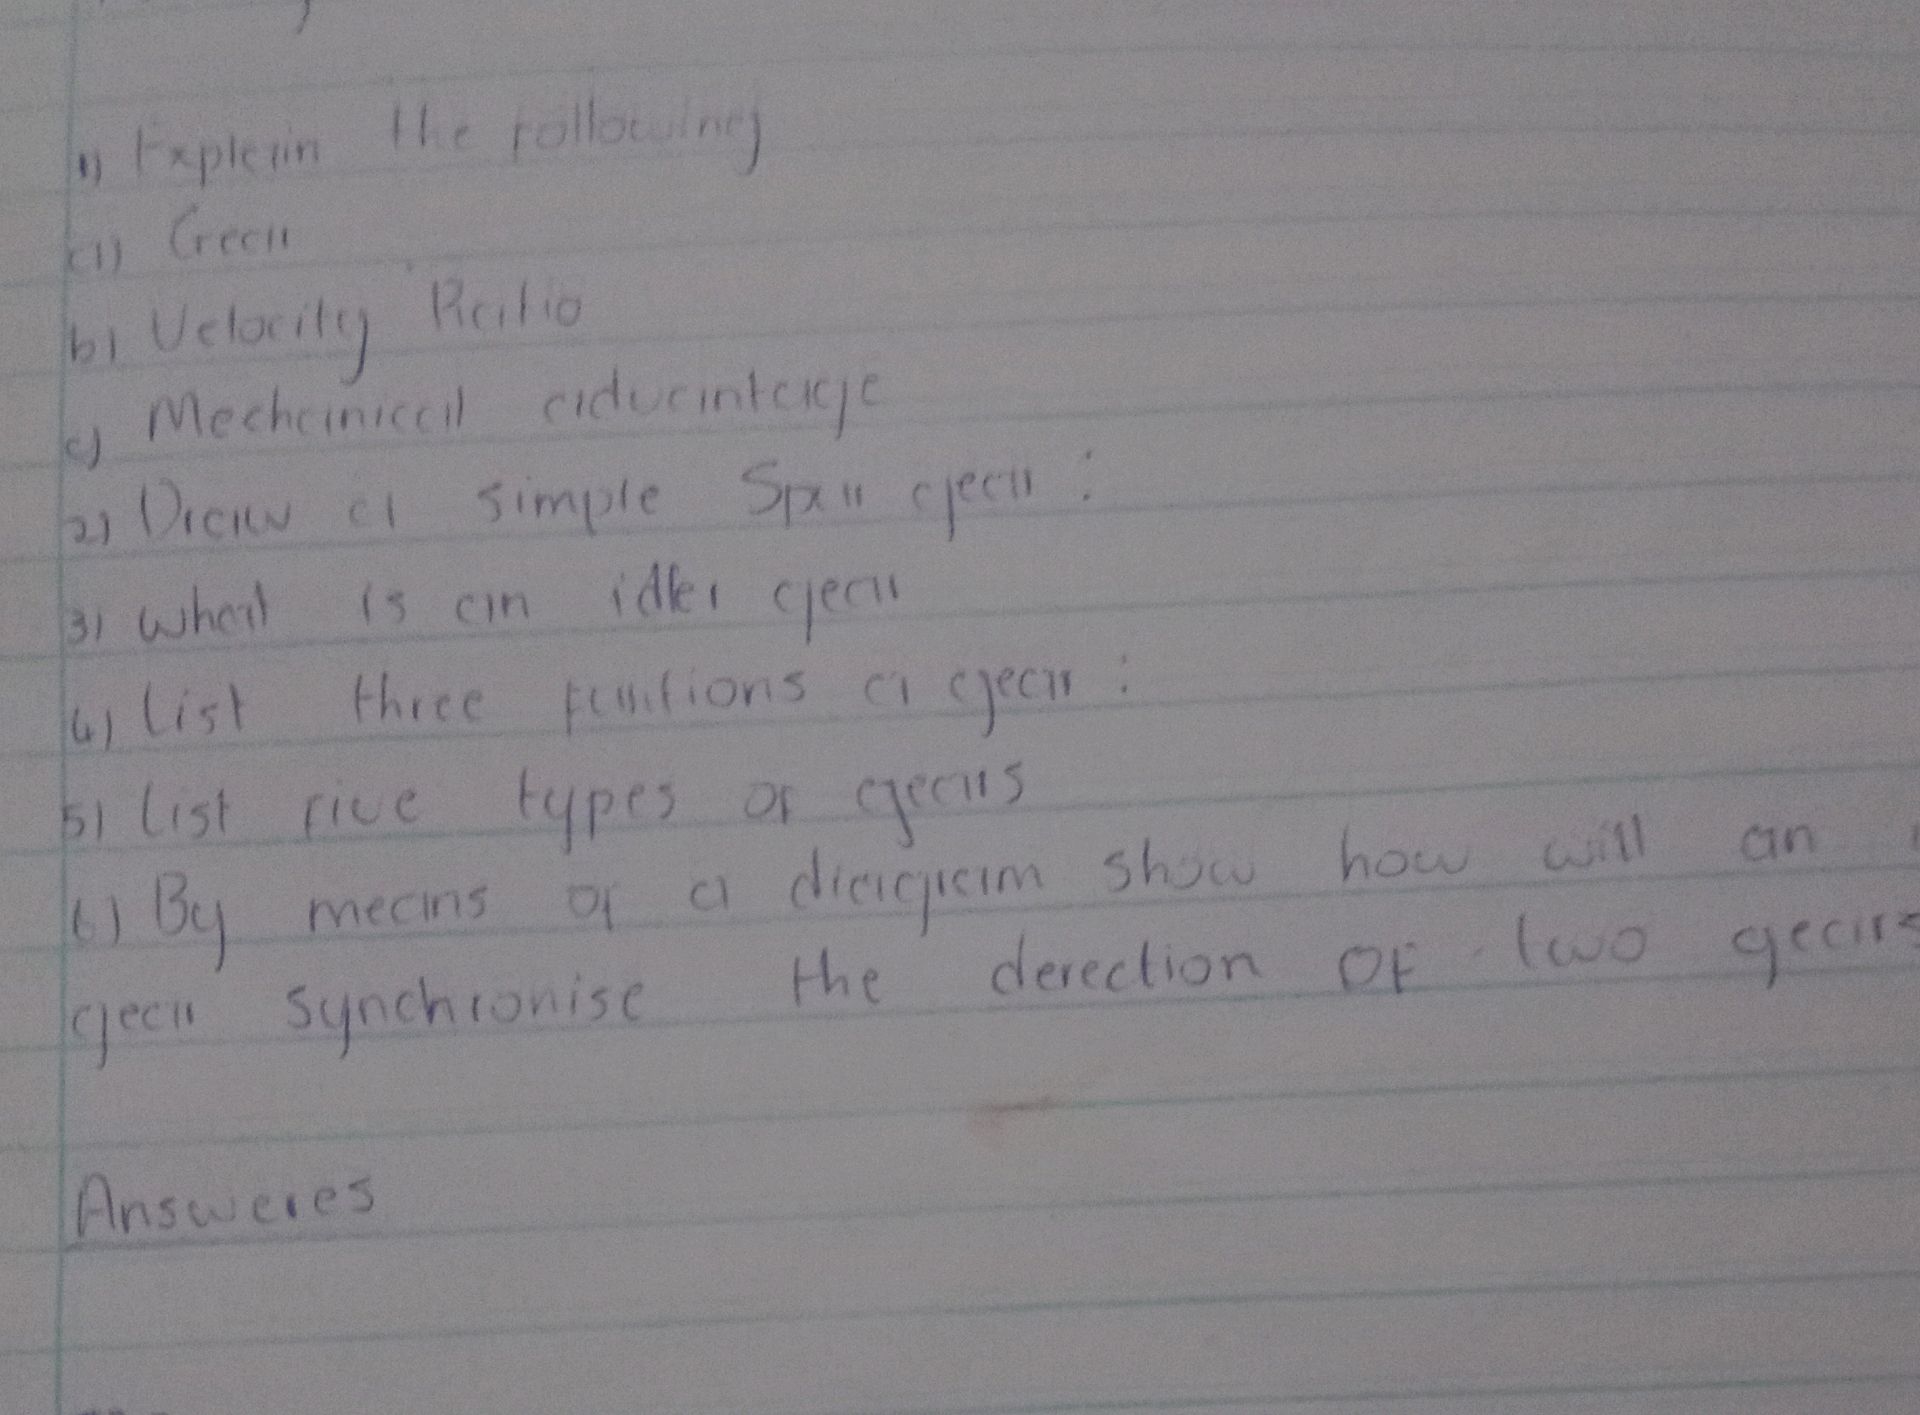 1) Explain the following
a) Gear
b) Velocity Ratio
c) Mechanical advantage
2) Draw a simple Spur gear :
3) what is an idler gear
4) List three funtions of gear :
5) List five types of gears
6) By means of a diagram show how will an
gear synchronise the derection OF two gears
Answeres